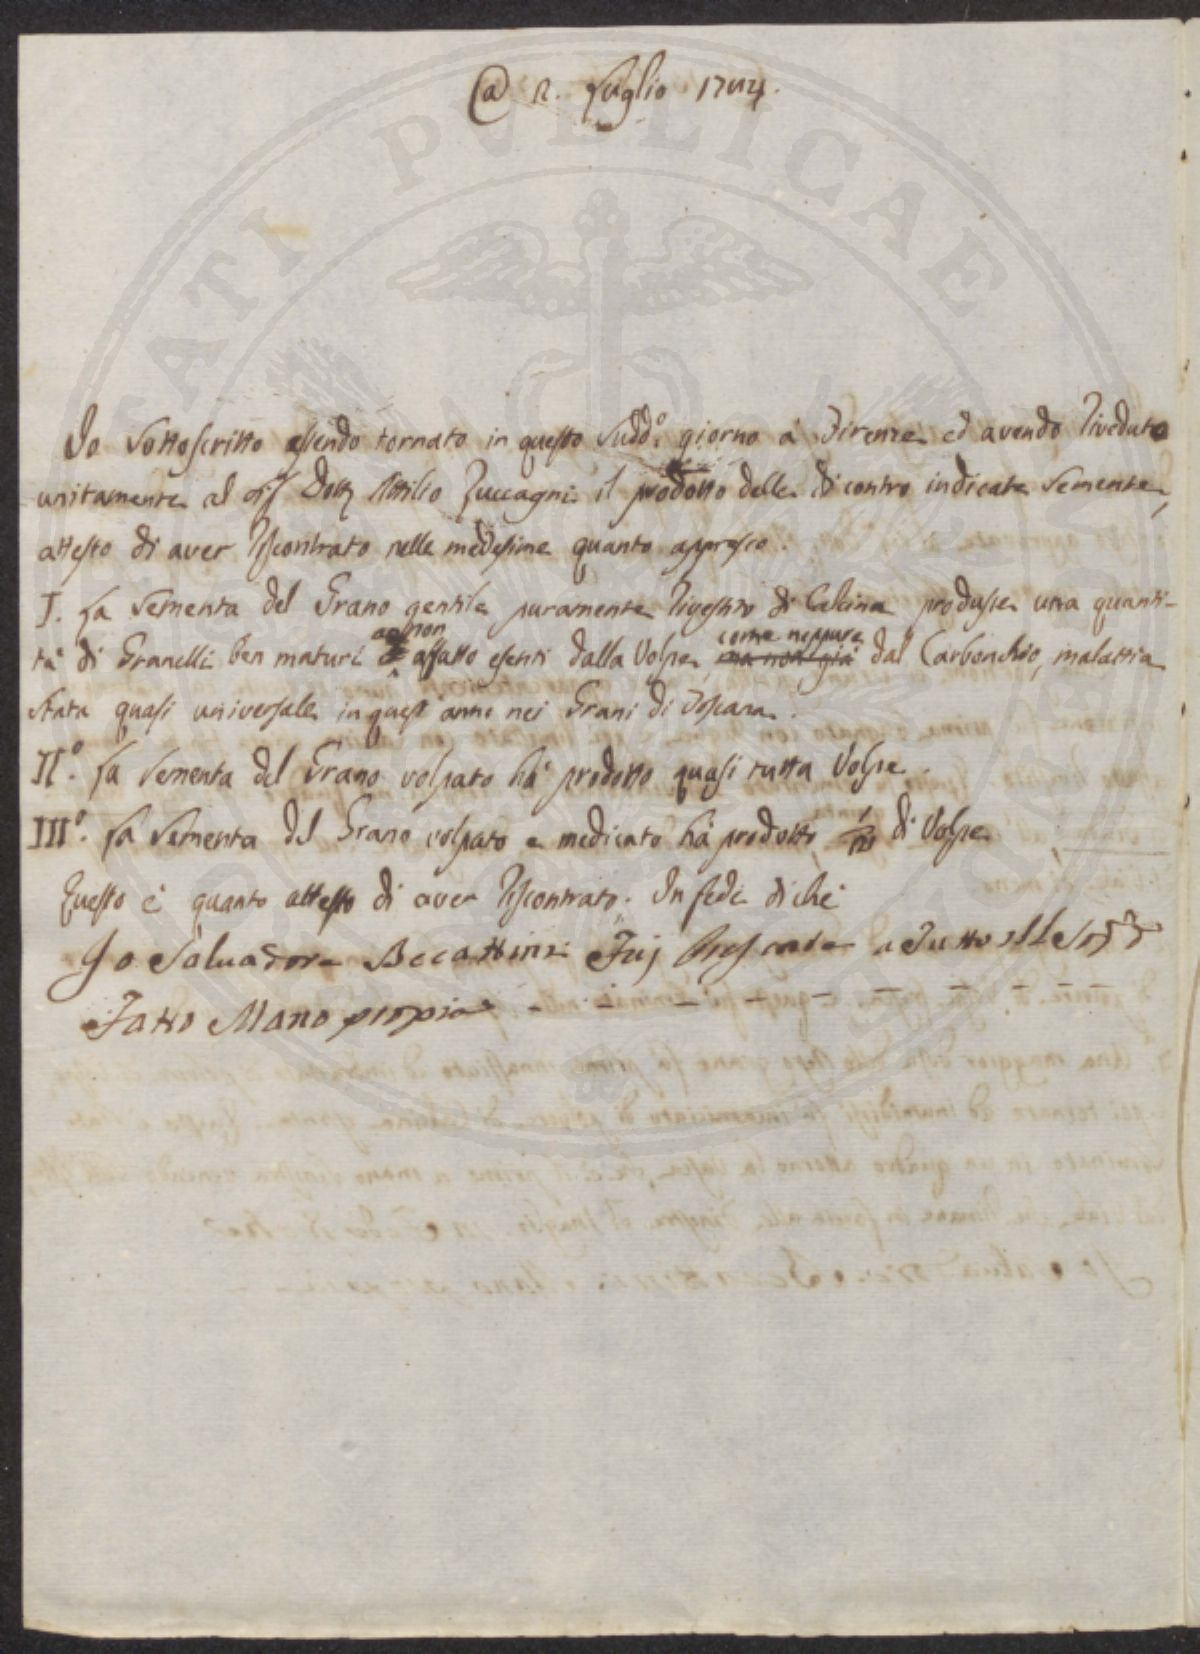 @ 2. Luglio 1784.
Io Sottoscritto essendo tornato in questo Sudd.o giorno a Firenze ed avendo riveduto
unitamente al Sig.r Dott.r Attilio Zuccagni il prodotto delle di contro indicate Semente,
attesto di aver riscontrato nelle medesime quanto appresso.
I. La Sementa del Grano gentile puramente rivestito di Calcina produsse una quanti-
tà di Granelli ben maturi non affatto esenti dalla Volpe, come neppure ma non già dal Carbonchio, malattia
stata quasi universale in quest'anno nei Grani di Toscana.
II.o La Sementa del Grano volpato ha prodotto quasi tutta Volpe.
III.o La Sementa del Grano volpato e medicato ha prodotto di Volpe
Questo è quanto attesto di aver riscontrato. In fede di che
Io Salvadore Becattini Fuj Presente a Tutto
Fatto Mano propia
PVBLICAE